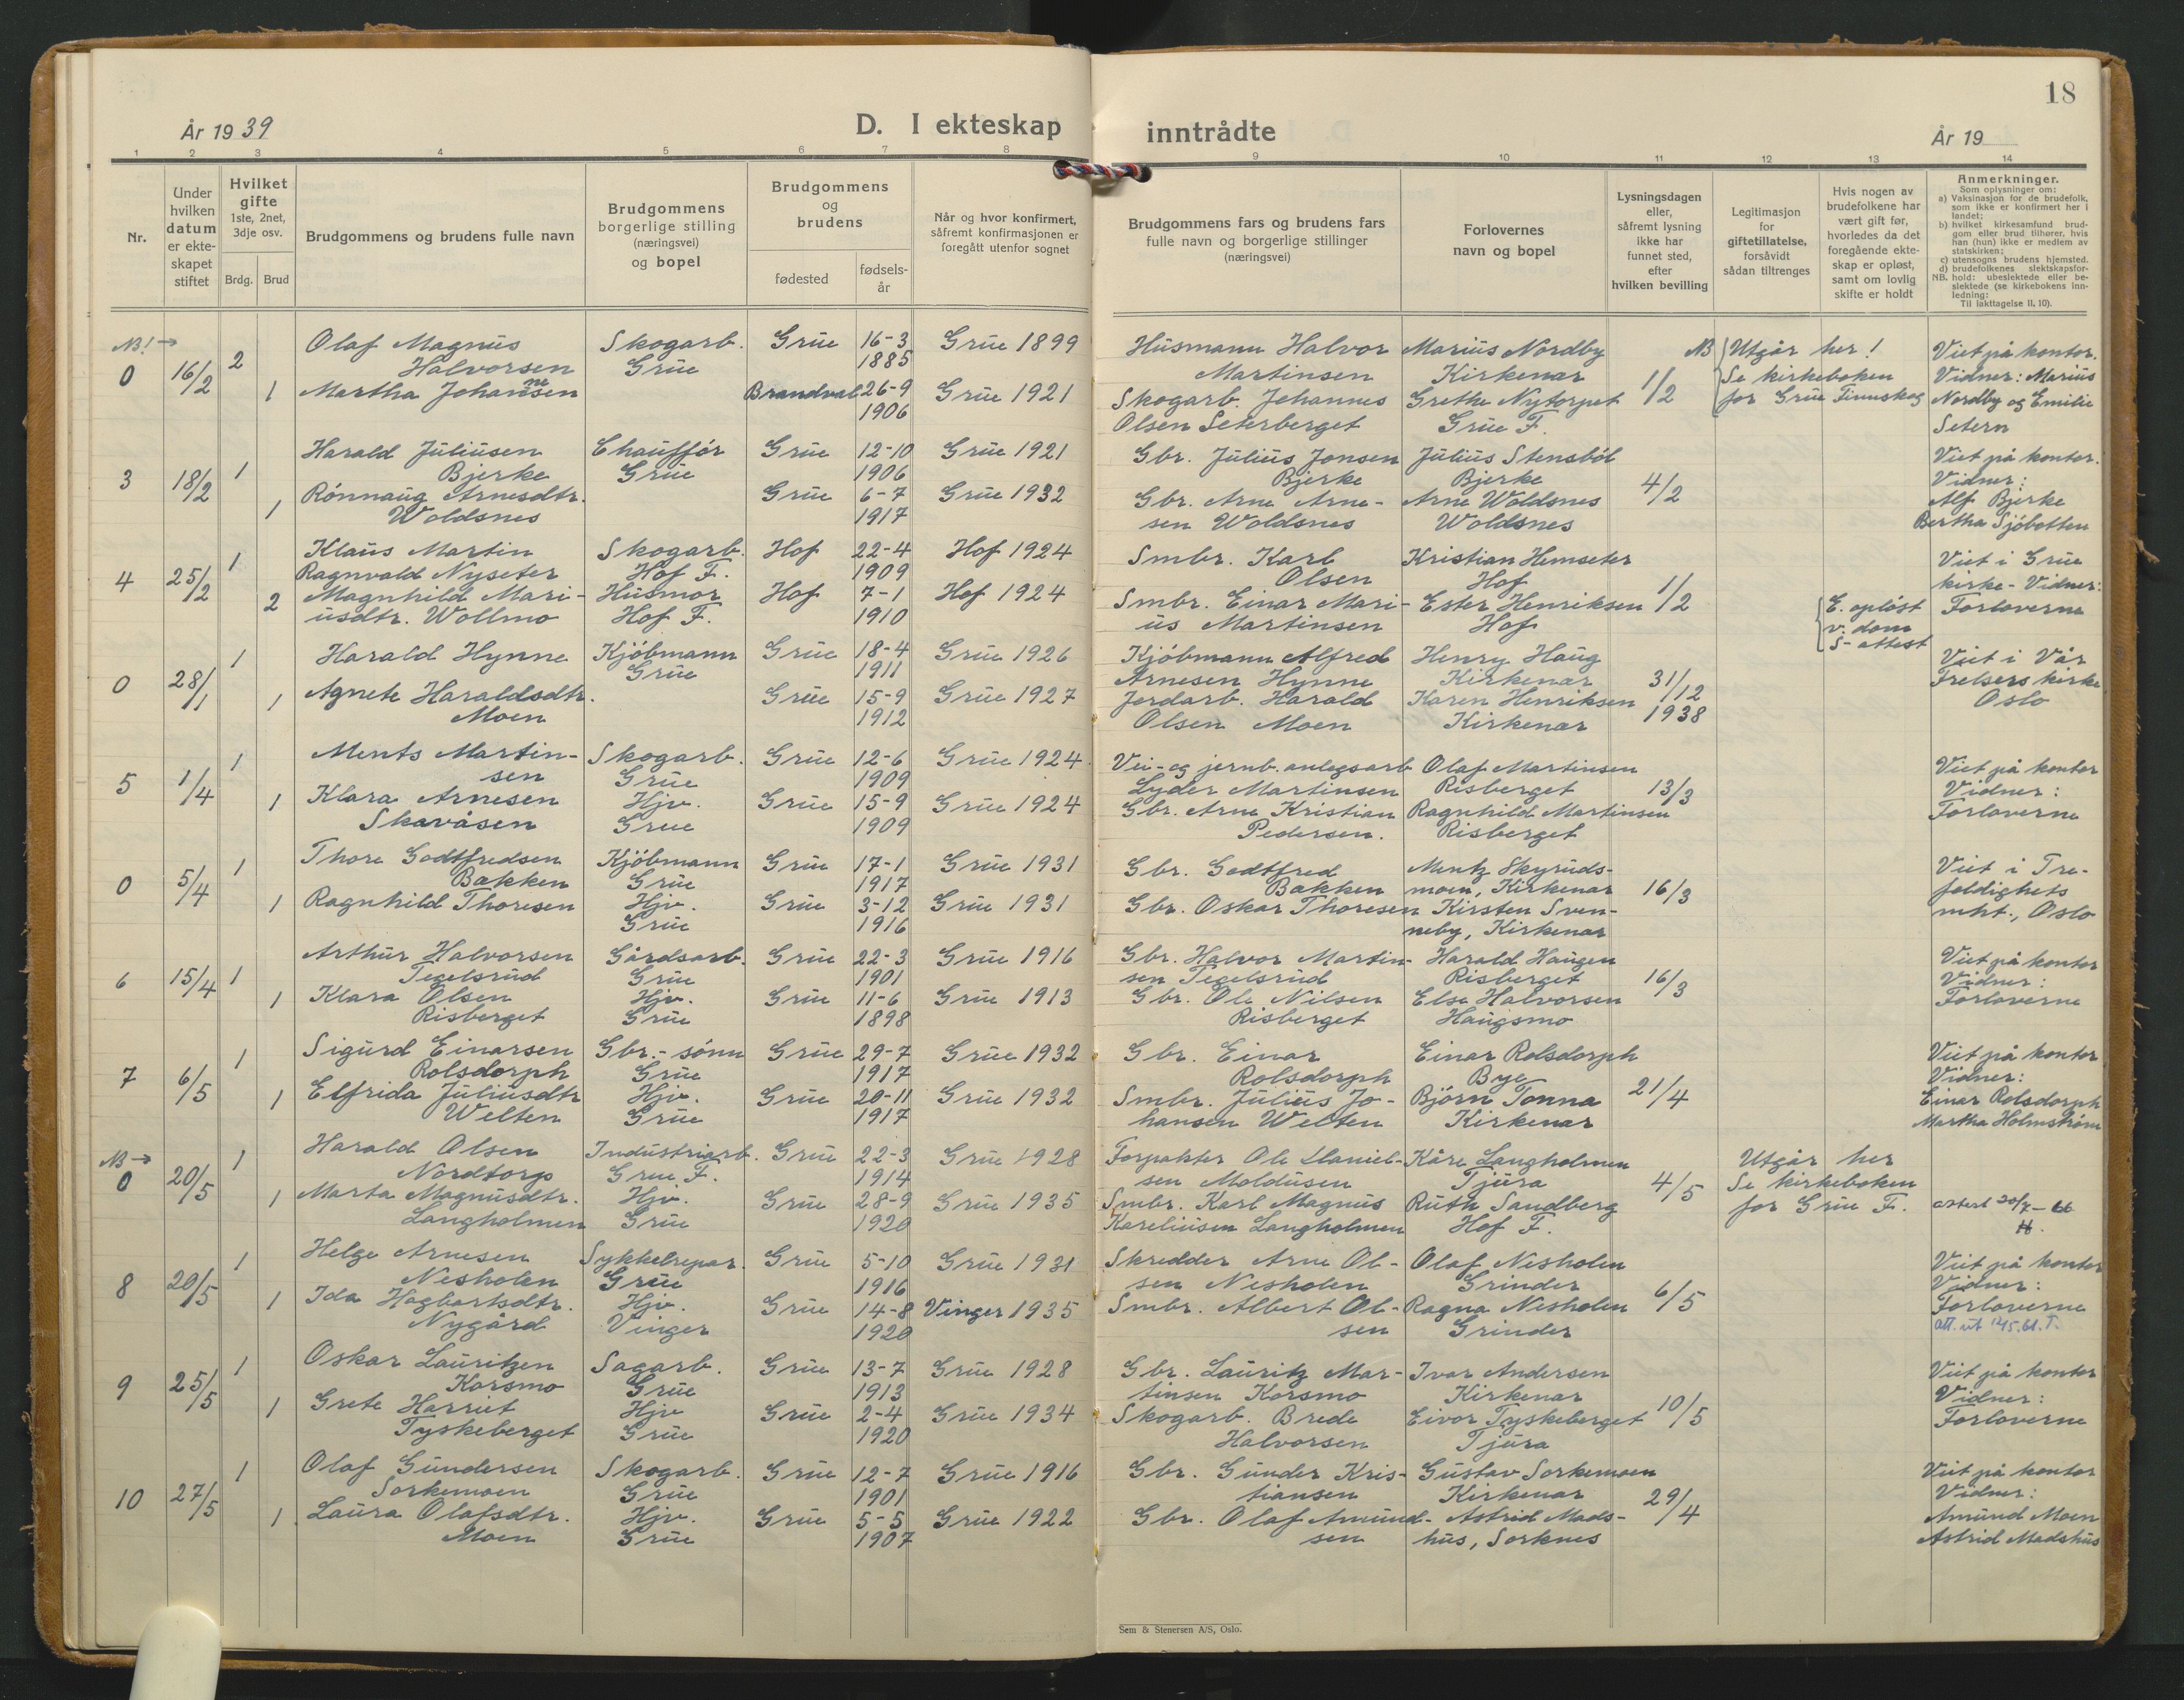 År 1939
D. I ekteskap
inntrådte
År 19
18
1 2 3 4 5 6 7 8 9 10 11 12 13 14
Nr.
Under hvilken datum er ekteskapet stiftet
Hvilket gifte
1ste, 2net, 3dje osv.
Brdg. Brud
Brudgommens og brudens fulle navn
Brudgommens borgerlige stilling (næringsvei) og bopel
Brudgommens og brudens
fødested
fødselsår
Når og hvor konfirmert, såfremt konfirmasjonen er foregått utenfor sognet
Brudgommens fars og brudens fars fulle navn og borgerlige stillinger (næringsvei)
Forlovernes navn og bopel
Lysningsdagen eller, såfremt lysning ikke har funnet sted, efter hvilken bevilling
Legitimasjon for giftetillatelse, forsåvidt sådan tiltrenges
Hvis nogen av brudefolkene har vært gift før, hvorledes da det foregående ekteskap er opløst, samt om lovlig skifte er holdt
Anmerkninger.
Som oplysninger om:
a) Vaksinasjon for de brudefolk, som ikke er konfirmert her i landet;
b) hvilket kirkesamfund brudgom eller brud tilhører, hvis han (hun) ikke er medlem av statskirken;
c) utensogns brudens hjemsted.
d) brudefolkenes slektskapsforhold: ubeslektede eller beslektede (se kirkebokens innledning:
NB.
Til iakttagelse II, 10).
NB! →
0 16/2 2 Olaf Magnus Halvorsen Skogarb. Grue Grue 16-3 1885 Grue 1899 Husmann Halvor Martinsen Marius Nordby Kirkenær
1 Martha Johannesen Brandval 26-9 1906 Grue 1921 Skogarb. Johannes Olsen Seterberget Grethe Nytorpet Grue F. 1/2
NB Utgår her! Se kirkeboken for Grue Finnskog
Viet på kontor. Vidner: Marius Nordby og Emilie Setern
3 18/2 1 Harald Juliusen Bjerke Chauffør Grue Grue 12-10 1906 Grue 1921 Gbr. Julius Jonsen Bjerke Julius Stensbøl Bjerke
1 Rønnaug Arnesdtr. Woldsnes Grue 6-7 1917 Grue 1932 Gbr. Arne Arnesen Woldsnes Arne Woldsnes Woldsnes 4/2
Viet på kontor. Vidner: Alf Bjerke Bertha Sjøbotten
4 25/2 1 Klaus Martin Ragnvald Nyseter Skogarb. Hof F. Hof 22-4 1909 Hof 1924 Smbr. Karl Olsen Kristian Hemseter Hof
2 Magnhild Mariusdtr. Wollmo Husmor Hof F. Hof 7-1 1910 Hof 1924 Smbr. Einar Marius Martinsen Ester Henriksen Hof 1/2
E. opløst v. dom S-attest
Viet i Grue kirke - Vidner: Forloverne
0 28/1 1 Harald Hynne Kjøbmann Grue Grue 18-4 1911 Grue 1926 Kjøbmann Alfred Arnesen Hynne Henry Haug Kirkenær
1 Agnete Haraldsdtr. Moen Grue 15-9 1912 Grue 1927 Jordarb. Harald Olsen Moen Karen Henriksen Kirkenær 31/12 1938
Viet i Vår Frelsers kirke Oslo
5 1/4 1 Ments Martinsen Skogarb. Grue Grue 12-6 1909 Grue 1924 Vei- og jernb. anlegsarb Lyder Martinsen Olaf Martinsen Risberget
1 Klara Arnesen Skavåsen Hjv. Grue Grue 15-9 1909 Grue 1924 Gbr. Arne Kristian Pedersen. Ragnhild Martinsen Risberget 13/3
Viet på kontor Vidner: Forloverne
0 5/4 1 Thore Godtfredsen Bakken Kjøbmann Grue Grue 17-1 1917 Grue 1931 Gbr. Godtfred Bakken Mentz Skyrudsmoen, Kirkenær
1 Ragnhild Thoresen Hjv. Grue Grue 3-12 1916 Grue 1931 Gbr. Oskar Thoresen Kirsten Svenneby, Kirkenær 16/3
Viet i Trefoldighets mht., Oslo
6 15/4 1 Arthur Halvorsen Tegelsrud Gårdsarb. Grue Grue 22-3 1901 Grue 1916 Gbr. Halvor Martinsen Tegelsrud Harald Haugen Risberget
1 Klara Olsen Risberget Hjv. Grue Grue 11-6 1898 Grue 1913 Gbr. Ole Nilsen Risberget Else Halvorsen Haugsmo 16/3
Viet på kontor Vidner: Forloverne
7 6/5 1 Sigurd Einarsen Rolsdorph Gbr.-sønn Grue Grue 29-7 1917 Grue 1932 Gbr. Einar Rolsdorph Einar Rolsdorph Bye
1 Elfrida Juliusdtr Welten Hjv. Grue Grue 20-11 1917 Grue 1932 Smbr. Julius Johansen Welten Bjørn Tonna Kirkenær 21/4
Viet på kontor Vidner: Einar Rolsdorph Martha Holmstrøm
NB →
0 20/5 1 Harald Olsen Nordtorp Industriarb. Grue F. Grue 22-3 1914 Grue 1928 Forpakter Ole Danielsen Moldusen Kåre Langholmen Tjura
1 Marta Magnusdtr. Langholmen Hjv. Grue Grue 28-9 1920 Grue 1935 Smbr. Karl Magnus Kareliusen Langholmen Ruth Sandberg Hof F. 4/5
Utgår her Se kirkeboken for Grue F.
attest 20/7-66
8 20/5 1 Helge Arnesen Nesholen Sykkelrepar. Grue Grue 5-10 1916 Grue 1931 Skredder Arne Olsen Nesholen Olaf Nesholen Grinder
1 Ida Hagbartsdtr. Nygård Hjv. Vinger Grue 14-8 1920 Vinger 1935 Smbr. Albert Olsen Ragna Nesholen Grinder 6/5
Viet på kontor Vidner: Forloverne
9 25/5 1 Oskar Lauritzen Korsmo Sagarb. Grue Grue 13-7 1913 Grue 1928 Gbr. Lauritz Martinsen Korsmo Ivar Andersen Kirkenær
1 Grete Harriet Tyskeberget Hjv Grue Grue 2-4 1920 Grue 1934 Skogarb. Brede Halvorsen Eivor Tyskeberget Tjura 10/5
Viet på kontor Vidner: Forloverne
10 27/5 1 Olaf Gundersen Sorkemoen Skogarb. Grue Grue 12-7 1901 Grue 1916 Gbr. Gunder Kristiansen Gustav Sorkemoen Kirkenær
1 Laura Olafsdtr. Moen Hjv. Grue Grue 5-5 1907 Grue 1922 Gbr. Olaf Amundsen Astrid Madshus, Sorknes 29/4
Viet på kontor Vidner: Amund Moen Astrid Madshus
Sem & Stenersen A/S, Oslo.